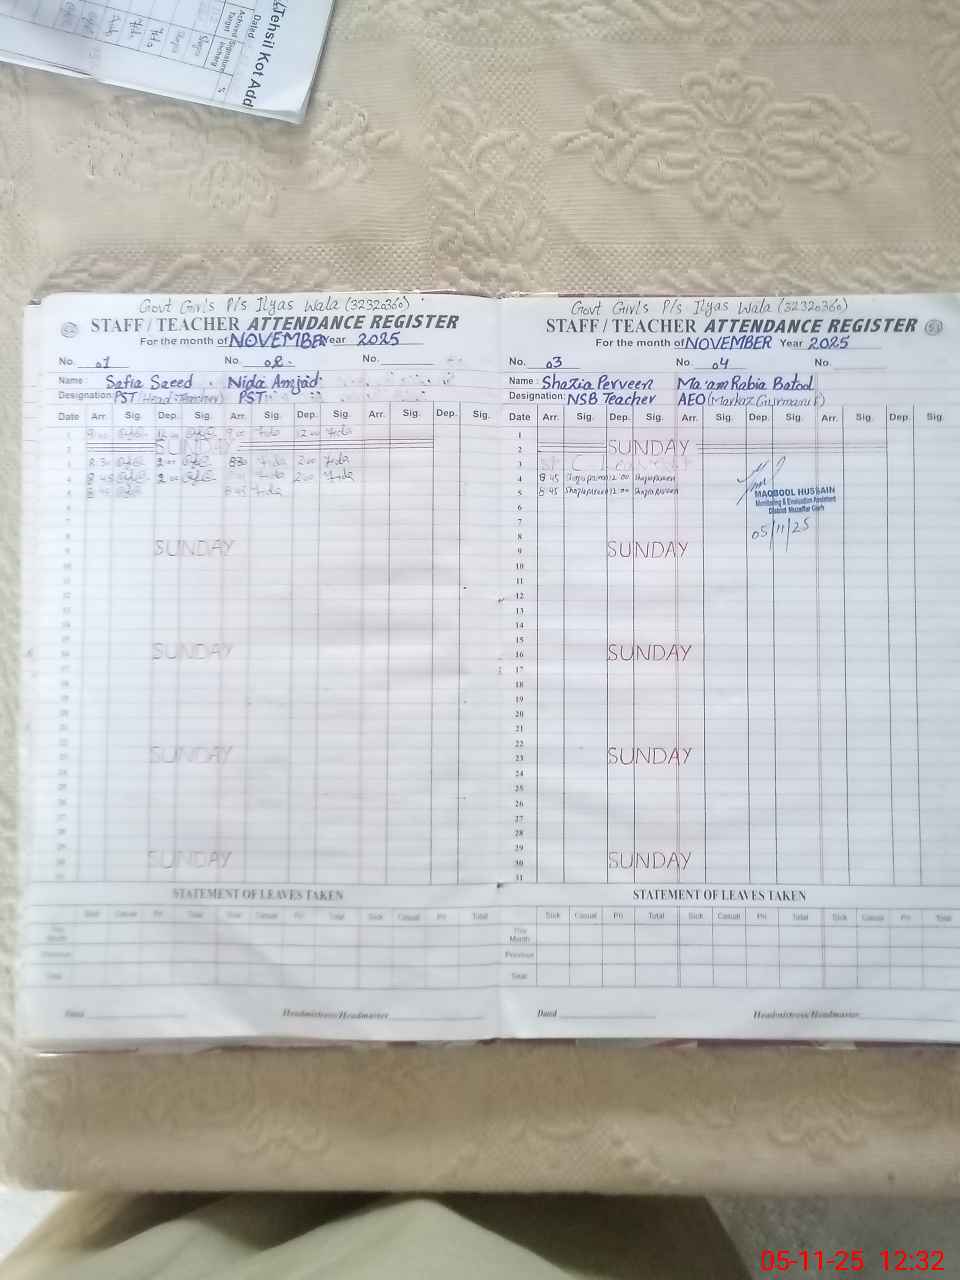 Tehsil Kot Add
Dated
Achived Target
Signature incherg
%
Govt Girl's P/s Ilyas Wala (32320360)
STAFF / TEACHER ATTENDANCE REGISTER
For the month of NOVEMBER Year 2025
No. 01 No. 02 No.
Name: Safia Saeed Nida Amjad
Designation: PST (Head Teacher) PST
Date Arr. Sig. Dep. Sig. Arr. Sig. Dep. Sig. Arr. Sig. Dep. Sig.
1 9 00 12 00 9 00 Nida 12 00 Nida
2 SUNDAY
3 8 30 2 00 830 Nida 2 00 Nida
4 8 45 2 00 Nida 2 00 Nida
5 8 45 8 45 Nida
6
7
8
9 SUNDAY
10
11
12
13
14
15
16 SUNDAY
17
18
19
20
21
22
23 SUNDAY
24
25
26
27
28
29
30 SUNDAY
31
STATEMENT OF LEAVES TAKEN
Sick Casual Pri Total Sick Casual Pri Total Sick Casual Pri Total
This Month
Previous
Total
Dated Headmistress/Headmaster
Govt Girl's P/s Ilyas Wala (32320360)
STAFF / TEACHER ATTENDANCE REGISTER
For the month of NOVEMBER Year 2025
No. 03 No. 04 No.
Name: Shazia Perveen Ma'am Rabia Batool
Designation: NSB Teacher AEO (Markaz Gurmani F)
Date Arr. Sig. Dep. Sig. Arr. Sig. Dep. Sig. Arr. Sig. Dep. Sig.
1
2 SUNDAY
3
4 8 45 Shazia parveen 12 00 Shazia parveen
5 8 45 Shazia parveen 12 00 Shazia parveen
MAQBOOL HUSSAIN
Monitoring & Evaluation Assistant
District Muzaffar Garh
05/11/25
6
7
8
9 SUNDAY
10
11
12
13
14
15
16 SUNDAY
17
18
19
20
21
22
23 SUNDAY
24
25
26
27
28
29
30 SUNDAY
31
STATEMENT OF LEAVES TAKEN
Sick Casual Pri Total Sick Casual Pri Total Sick Casual Pri Total
This Month
Previous
Total
Dated Headmistress/Headmaster
05-11-25 12:32